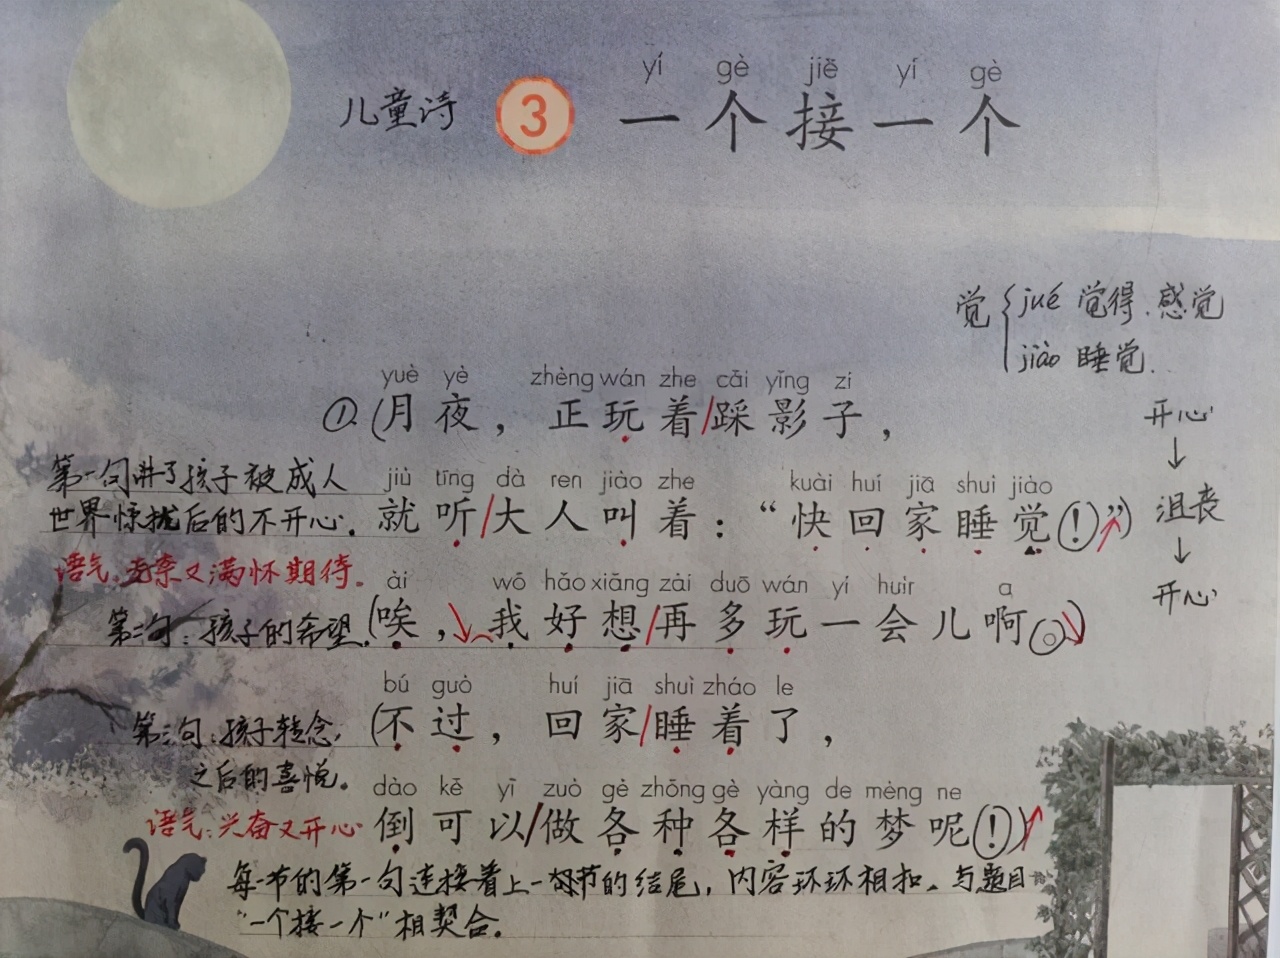 yí gè jiē yí gè
儿童诗 3 一个接一个
觉 jué 觉得、感觉
jiào 睡觉.
yuè yè zhèng wán zhe cǎi yǐng zi
①.(月夜，正玩着/踩影子，
开心
↓
沮丧
↓
开心
第一句讲了孩子被成人
世界惊扰后的不开心.
jiù tīng dà ren jiào zhe kuài huí jiā shuì jiào
就听/大人叫着：“快回家睡觉！”)
语气:无奈又满怀期待.
ài wǒ hǎo xiǎng zài duō wán yí huìr a
第二句:孩子的希望.
(唉，我好想/再多玩一会儿啊。)
bú guò huí jiā shuì zháo le
第三句:孩子转念,
之后的喜悦.
(不过，回家/睡着了，
dào kě yǐ zuò gè zhǒng gè yàng de mèng ne
语气:兴奋又开心
倒可以/做各种各样的梦呢！)
每一节的第一句连接着上一节的结尾,内容环环相扣.与题目
“一个接一个”相契合.